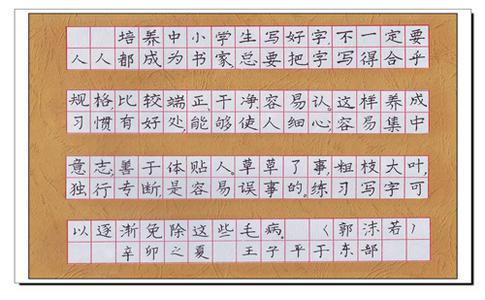 培养中小学生写好字,不一定要
人人都成为书家总要把字写得合乎
规格,比较端正、干净、容易认。这样养成
习惯有好处,能够使人细心,容易集中
意志,善于体贴人。草草了事,粗枝大叶,
独行专断,是容易误事的。练习写字可
以逐渐免除这些毛病。〈郭沫若〉
辛卯之夏 王子平于东部